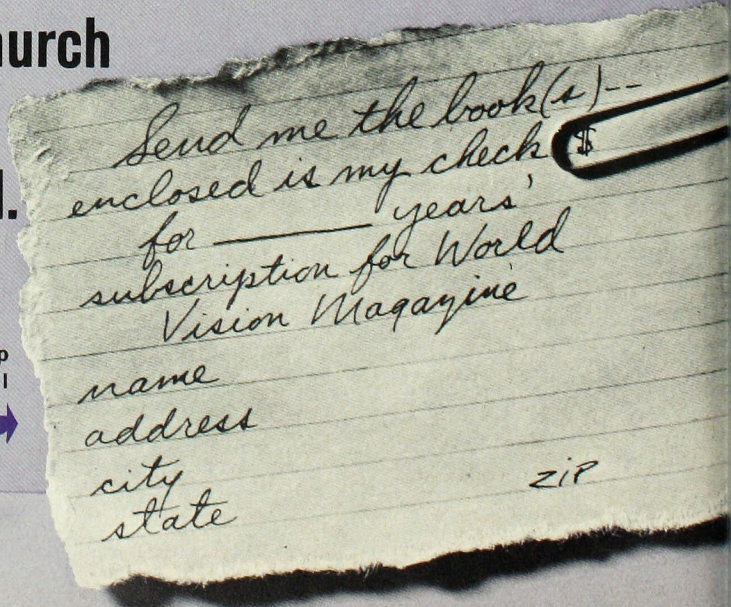 Send me the book(s)--
enclosed is my check $
for ______ years'
subscription for World
Vision Magazine
name
address
city
state zip